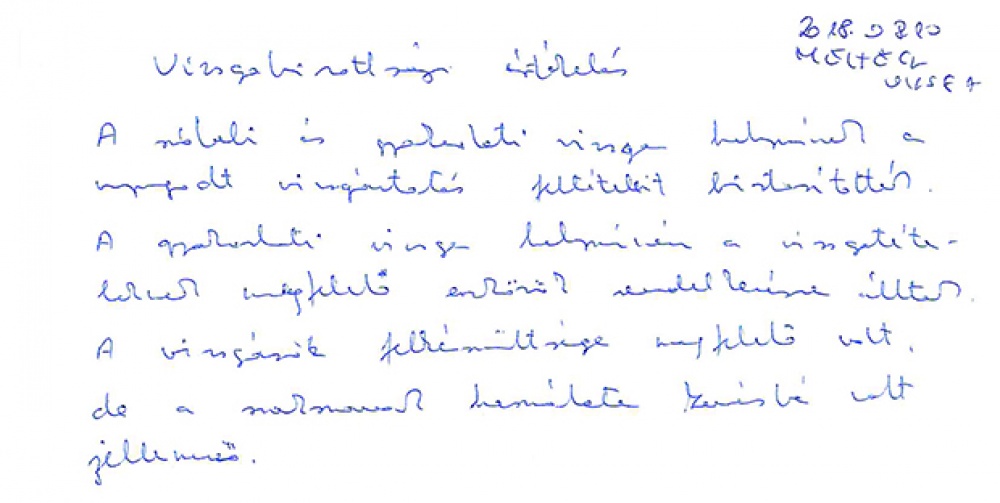 2018.0820
MÉHÉSZ
Vizsgabizottsági értékelés
A szóbeli és gyakorlati vizsga helyszínei a
nyugodt vizsgáztatás feltételeit biztosították.
A gyakorlati vizsga helyszínén a vizsgatéte-
leknek megfelelő eszközök rendelkezésre álltak.
A vizsgázók felkészültsége megfelelő volt,
de a szakszavak használata kevésbé volt
jellemző.